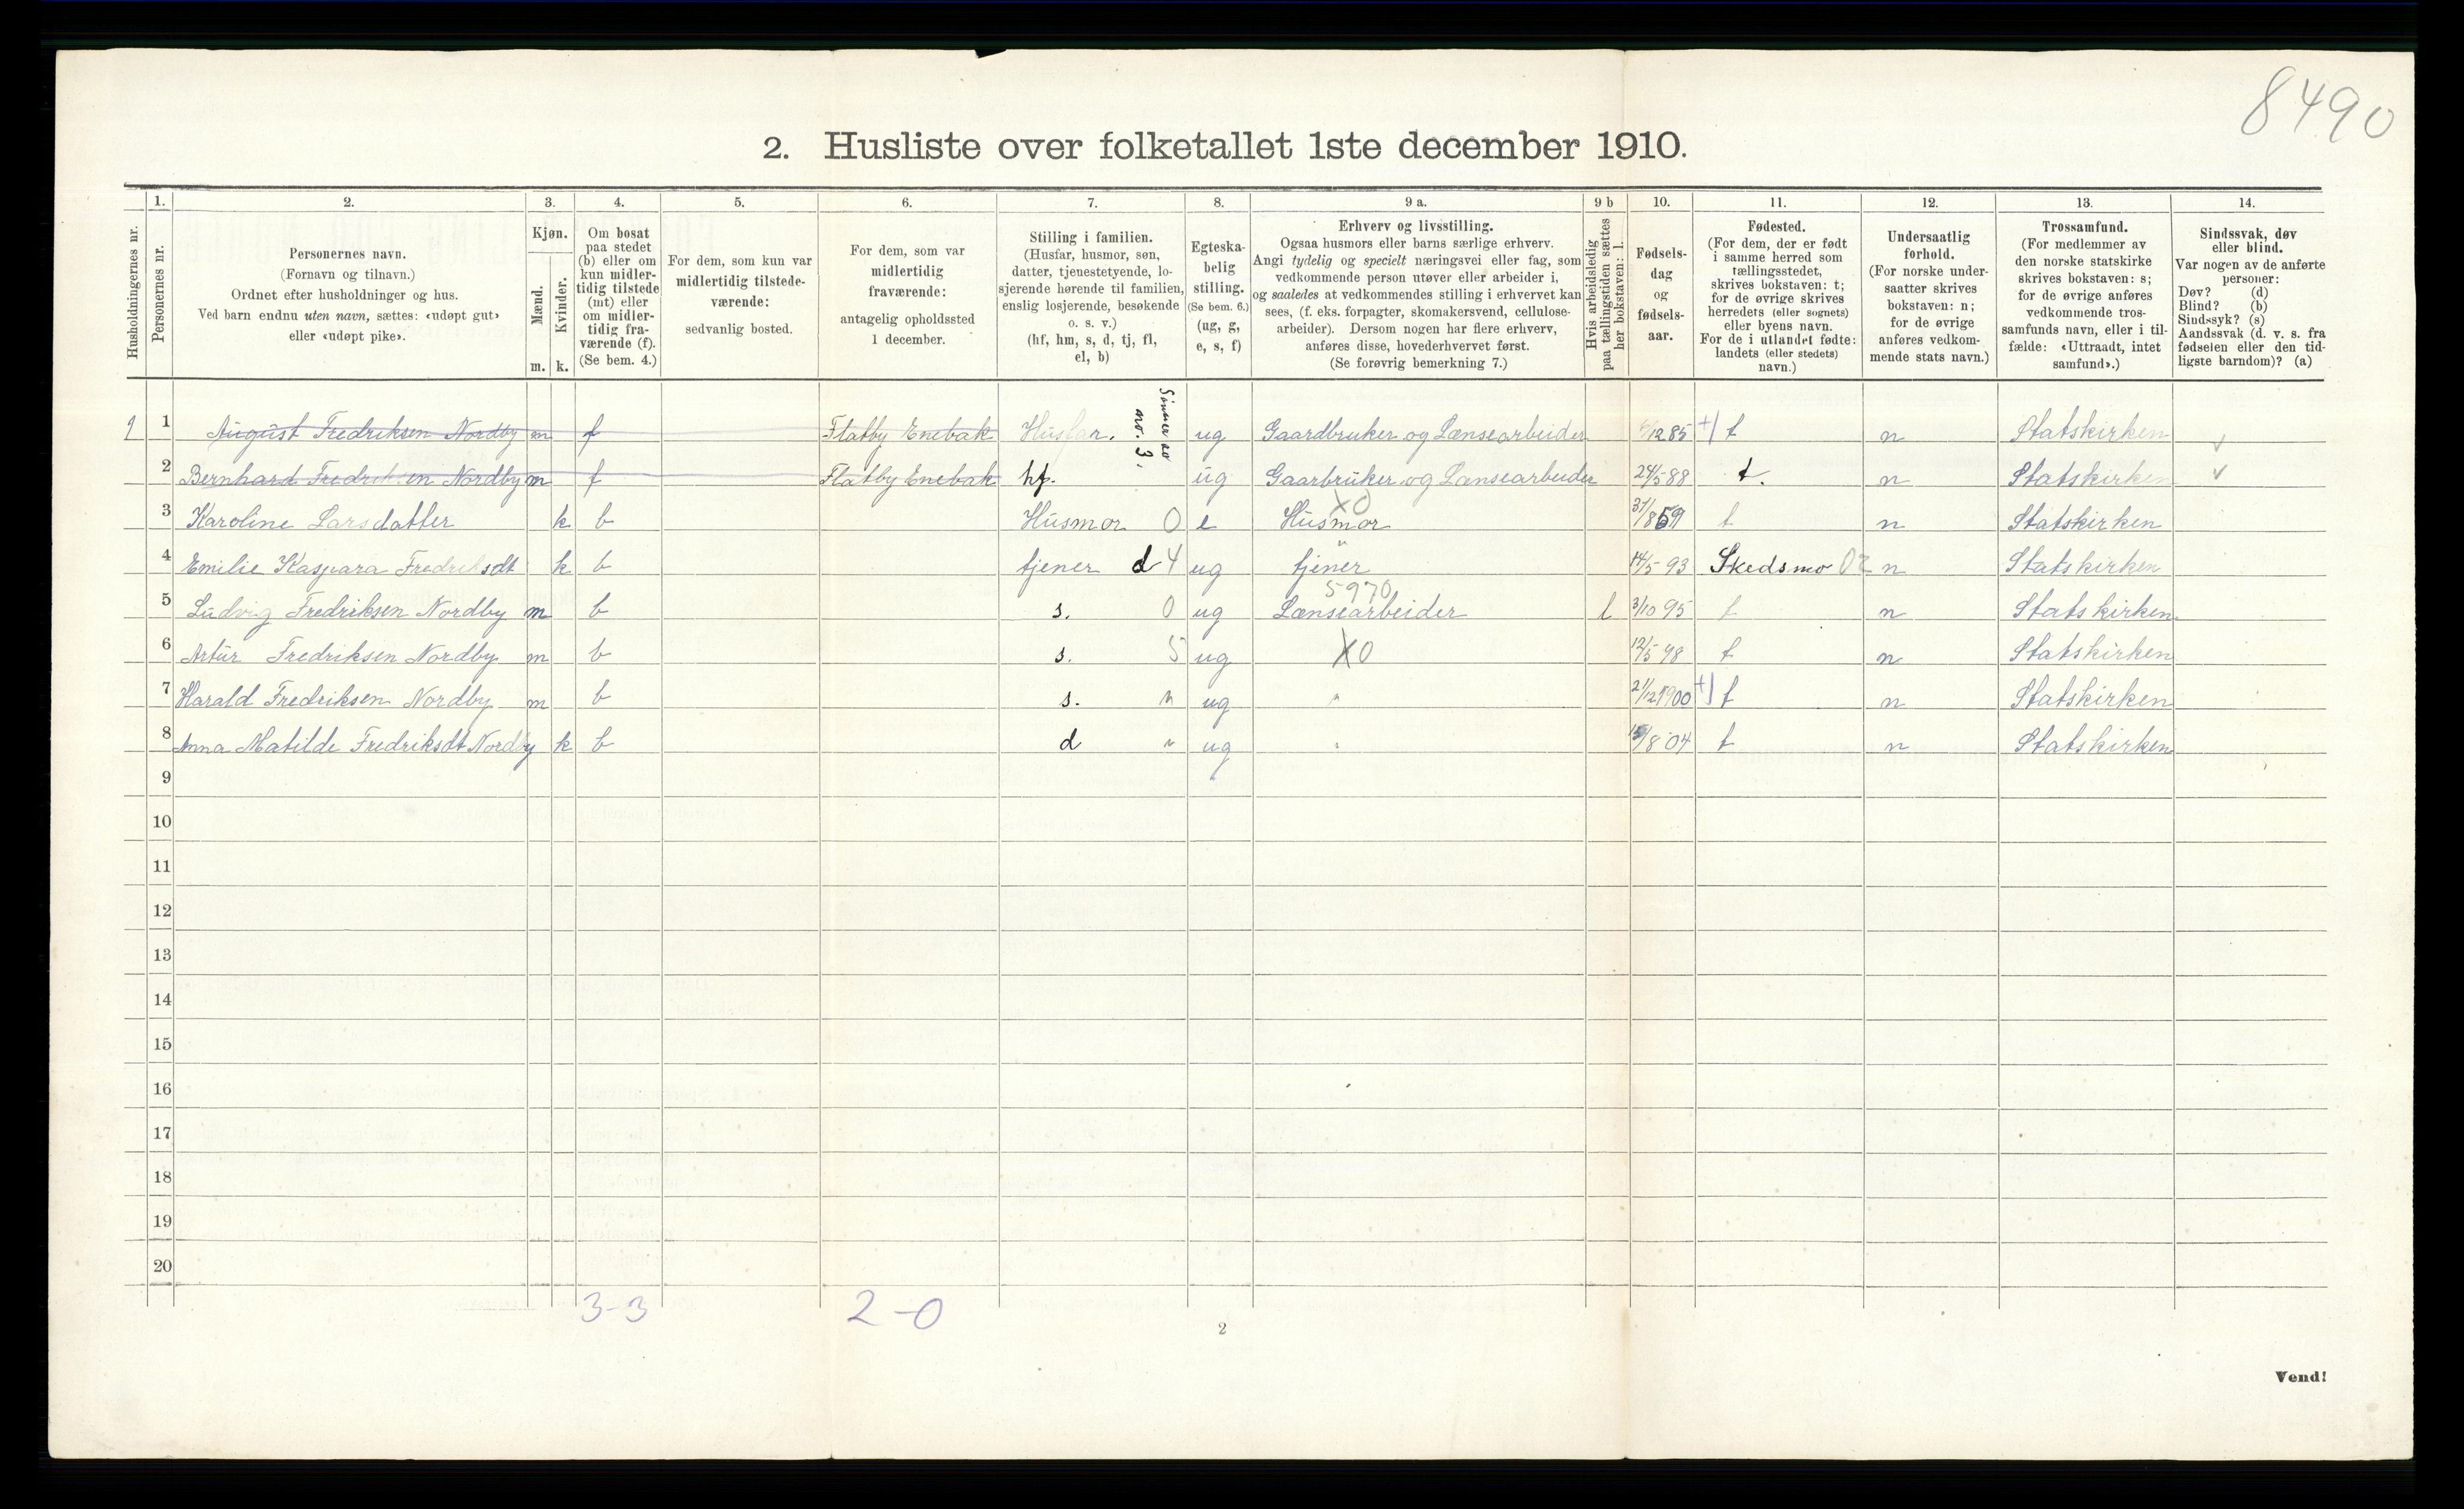 8490
2. Husliste over folketallet 1ste december 1910.
Husholdningernes nr.
1.
Personernes nr.
2.
Personernes navn.
(Fornavn og tilnavn.)
Ordnet efter husholdninger og hus.
Ved barn endnu uten navn, sættes: «udøpt gut»
eller «udøpt pike».
3.
Kjøn.
Mænd.
Kvinder.
m. k.
4.
Om bosat
paa stedet
(b) eller om
kun midler-
tidig tilstede
(mt) eller
om midler-
tidig fra-
værende (f).
(Se bem. 4.)
5.
For dem, som kun var
midlertidig tilstede-
værende:
sedvanlig bosted.
6.
For dem, som var
midlertidig
fraværende:
antagelig opholdssted
1 december.
7.
Stilling i familien.
(Husfar, husmor, søn,
datter, tjenestetyende, lo-
sjerende hørende til familien,
enslig losjerende, besøkende
o. s. v.)
(hf, hm, s, d, tj, fl,
el, b)
8.
Egteska-
belig
stilling.
(Se bem. 6.)
(ug, g,
e, s, f)
9 a.
Erhverv og livsstilling.
Ogsaa husmors eller barns særlige erhverv.
Angi tydelig og specielt næringsvei eller fag, som
vedkommende person utøver eller arbeider i,
og saaledes at vedkommendes stilling i erhvervet kan
sees, (f. eks. forpagter, skomakersvend, cellulose-
arbeider). Dersom nogen har flere erhverv,
anføres disse, hovederhvervet først.
(Se forøvrig bemerkning 7.)
9 b
Hvis arbeidsledig
paa tællingstiden sættes
her bokstaven: l.
10.
Fødsels-
dag
og
fødsels-
aar.
11.
Fødested.
(For dem, der er født
i samme herred som
tællingsstedet,
skrives bokstaven: t;
for de øvrige skrives
herredets (eller sognets)
eller byens navn.
For de i utlandet fødte:
landets (eller stedets)
navn.)
12.
Undersaatlig
forhold.
(For norske under-
saatter skrives
bokstaven: n;
for de øvrige
anføres vedkom-
mende stats navn.)
13.
Trossamfund.
(For medlemmer av
den norske statskirke
skrives bokstaven: s;
for de øvrige anføres
vedkommende tros-
samfunds navn, eller i til-
fælde: «Uttraadt, intet
samfund».)
14.
Sindssvak, døv
eller blind.
Var nogen av de anførte
personer:
Døv? (d)
Blind? (b)
Sindssyk? (s)
Aandssvak (d. v. s. fra
fødselen eller den tid-
ligste barndom)? (a)
Sönner av
no. 3.
1 1 August Fredriksen Nordby m f Flatby Enebak Husfar. ug Gaardbruker og Lænsearbeider 6/12 85 +1 t n Statskirken
2 Bernhard Fredriksen Nordby m f Flatby Enebak hf. ug Gaarbruker og Lænsearbeider 24/5 88 t. n Statskirken
3 Karoline Larsdatter k b Husmor 0 e Husmor X0 31/8 59 t n Statskirken
4 Emilie Kaspara Fredriksdt k b tjener d 4 ug tjener " 14/5 93 Skedsmo 02 n Statskirken
5 Ludvig Fredriksen Nordby m b s. 0 ug Lænsearbeider 5970 l 3/10 95 t n Statskirken
6 Artur Fredriksen Nordby m b s. 5 ug X0 12/5 98 t n Statskirken
7 Harald Fredriksen Nordby m b s. " ug " 21/12 1900 +1 t n Statskirken
8 Anna Matilde Fredriksdt Nordby k b d " ug " 15/8 04 t n Statskirken
9
10
11
12
13
14
15
16
17
18
19
20
3-3 2-0
2
Vend!